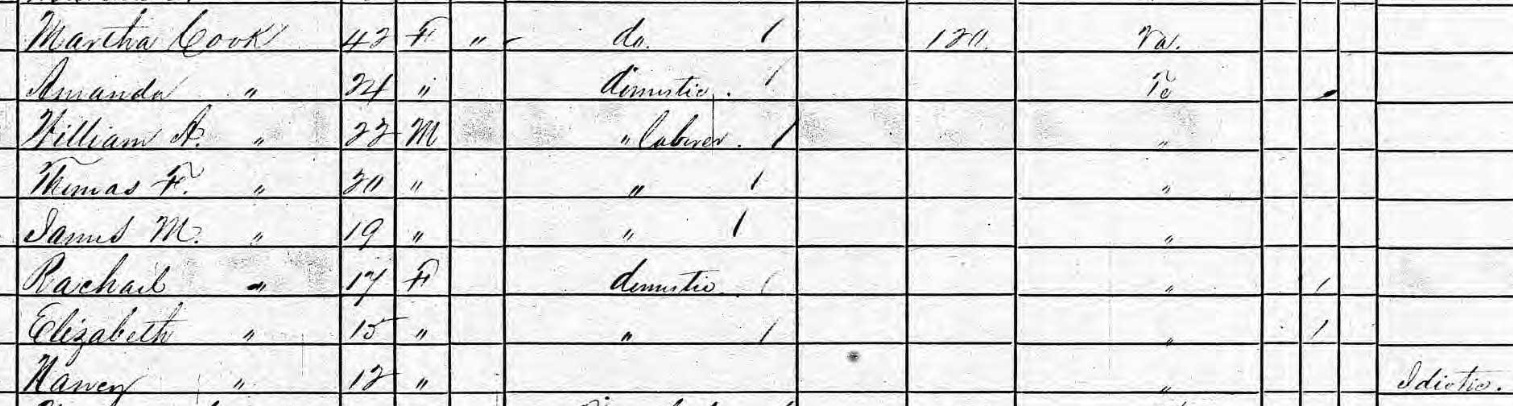 Martha Cook 42 F " do. / 120 Va.
Amanda " 24 " domestic. / Te
William A. " 22 M " laborer. / "
Thomas F. " 20 " " / "
James M. " 19 " " / "
Rachail " 17 F domestic / " /
Elizabeth " 15 " " / " /
Nancy " 12 " " Idiotic.